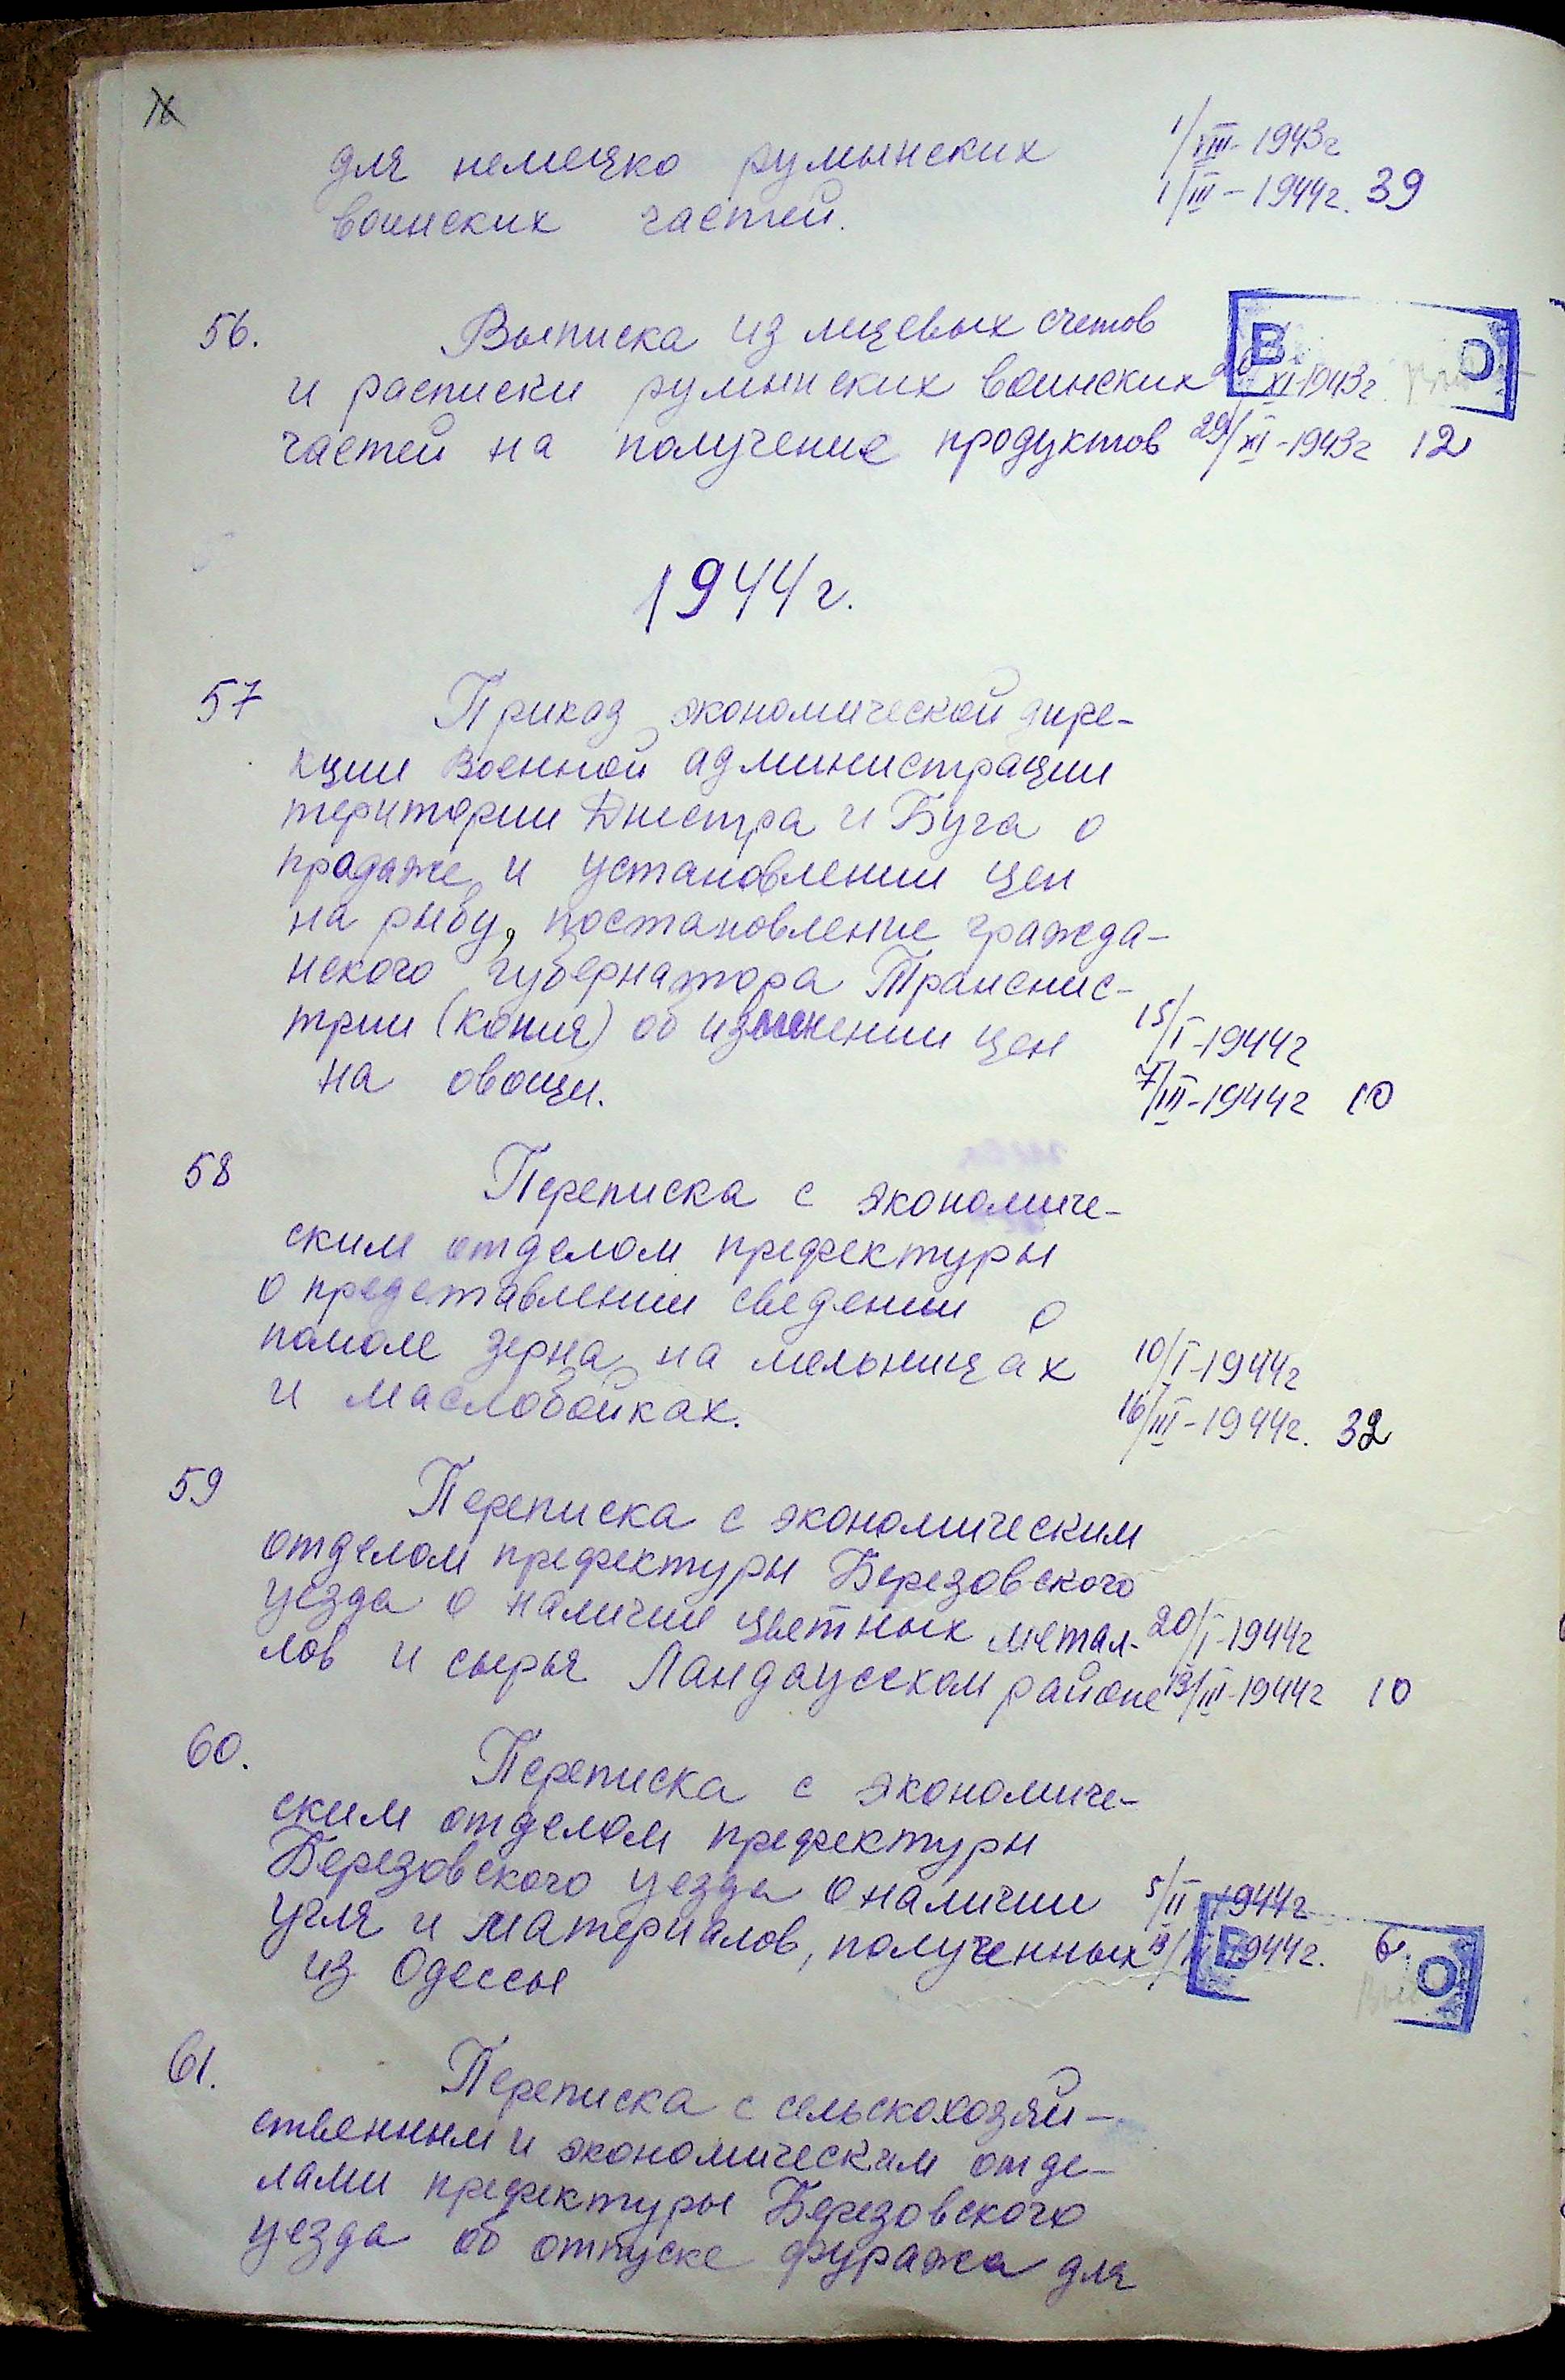 для немецко румынских 1/VIII-1943г
воинских частей. 1/III-1944г. 39
56. Выписка из лицевых счетов
и расписки румынских воинских 20/XI-1943г
частей на получение продуктов 29/XI-1943г 12
В О
1944г.
57 Приказ экономической дире-
кции Военной администрации
територии Днестра и Буга о
продаже и установлении цен
на рыбу, постановление гражда-
нского губернатора Транснис-
трии (копия) об изменении цен 15/I-1944г
на овощи. 7/III-1944г 10
58 Переписка с экономиче-
ским отделом префектуры
о предетавлении сведении о
помоле зерна на мельницах 10/I-1944г
и маслобойках. 16/III-1944г. 32
59 Переписка с экономическим
отделом префектуры Березовского
уезда о наличие цветных метал- 20/I-1944г
лов и сырья Ландаусском районе 13/III-1944г 10
60. Переписка с экономиче-
ским отделом префектуры
Березовского уезда о наличии 5/II 1944г
угля и материалов, полученных 1944г. 6.
из Одессы
В О
61. Переписка с сельскохозяй-
ственным и экономическим отде-
лами префектуры Березовского
уезда об отпуске фуража для